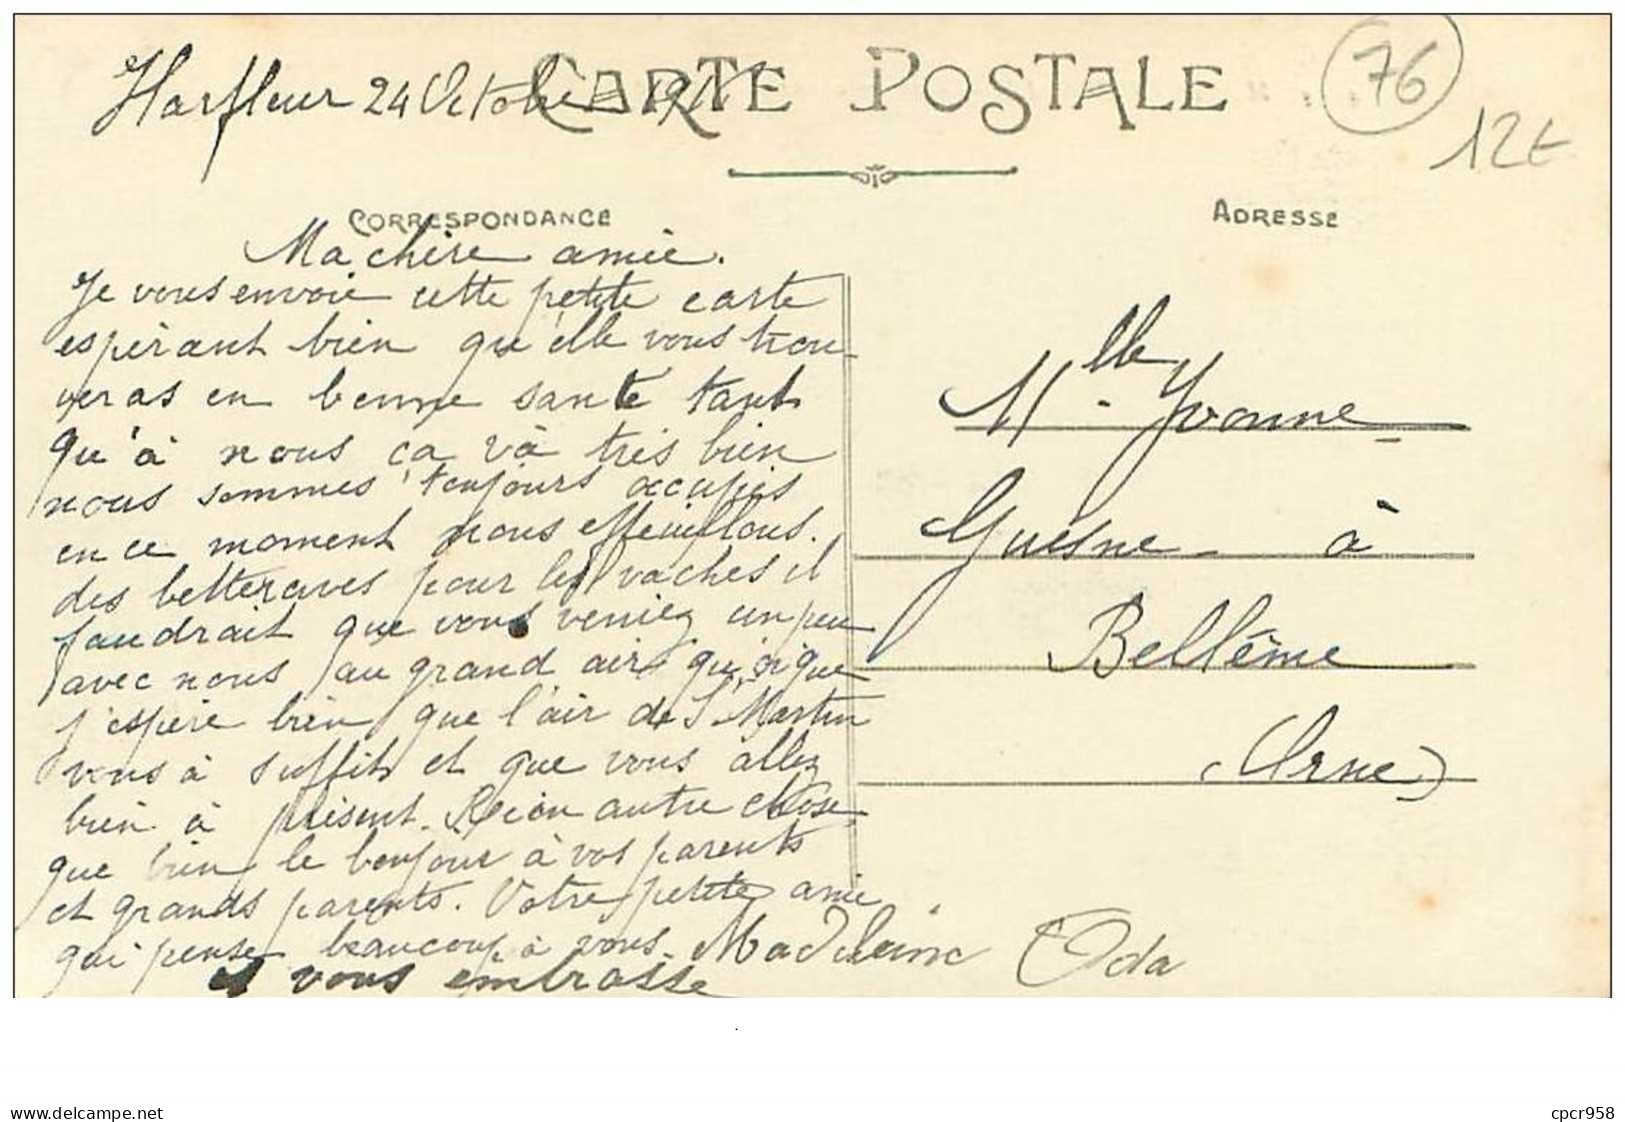 Harfleur 24 Octobre
CARTE POSTALE
76
12€
CORRESPONDANCE
ADRESSE
Ma chère amie.
Je vous envoie cette petite carte
espèrant bien qu'elle vous trou-
veras en bonne santé tant
qu'à nous ça và très bien
nous sommes toujours occupés
en ce moment nous effeuillons.
des betteraves pour les vaches il
faudrait que vous veniez un peu
avec nous au grand air quoique
j'espère bien que l'air de St Martin
vous à suffit et que vous allez
bien à présent. Reion autre chose
que bien le bonjour à vos parents
et grands parents. Votre petite amie
qui pense beaucoup à vous. Madeleine Oda
et vous embrasse
Mlle Yvonne
Guesne à
Bellême
(Orne)
www.delcampe.net
cpcr958